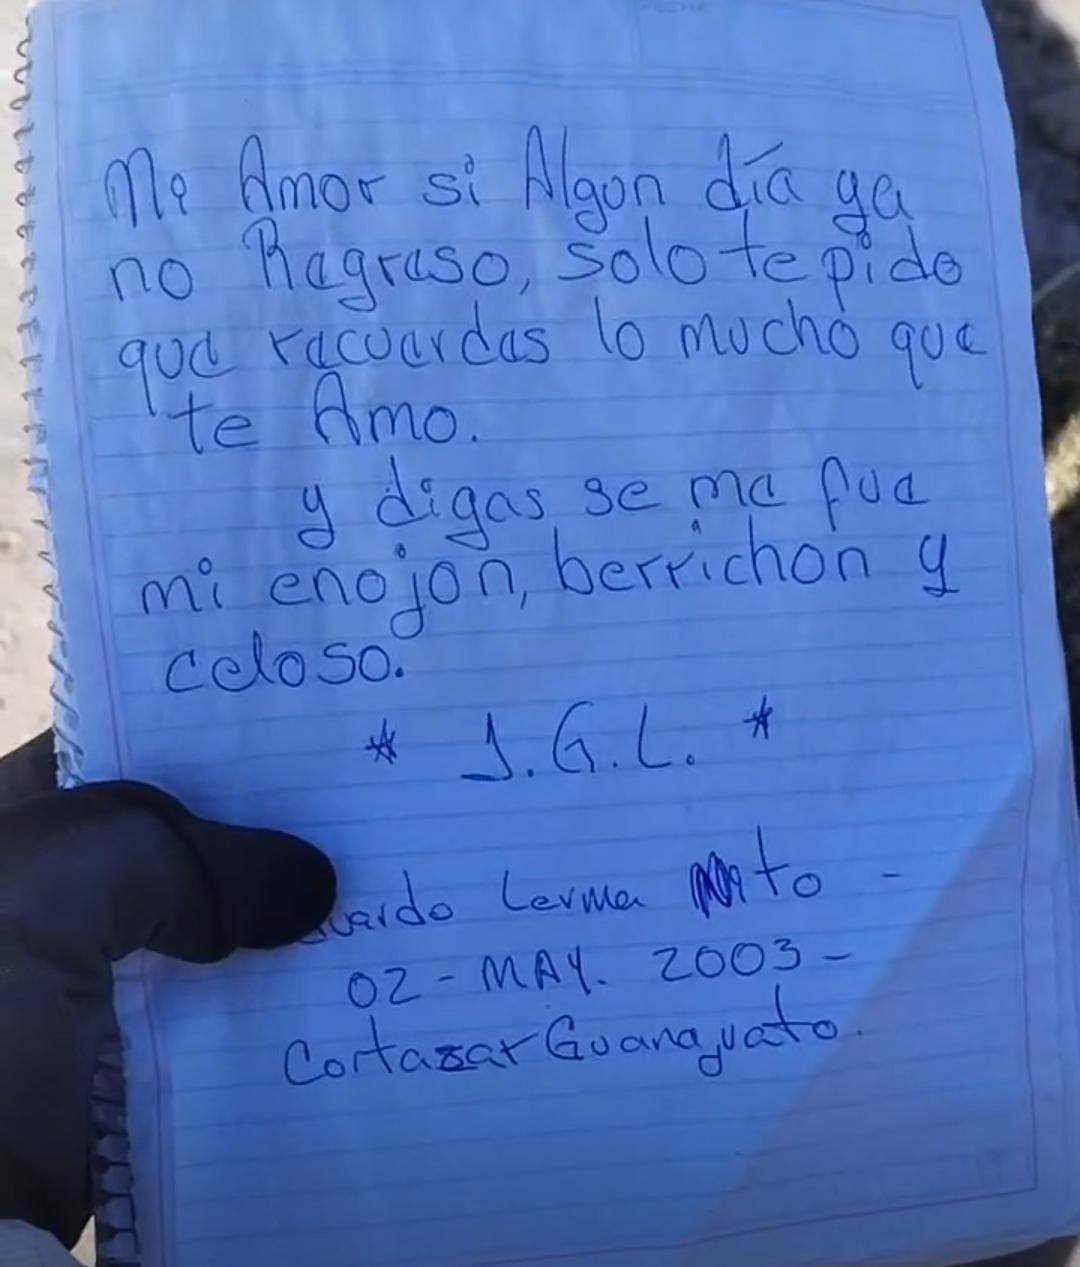 Mi Amor si Algun día ya
no Regreso, solo te pido
que recuerdes lo mucho que
te Amo.
y digas se me fue
mi enojon, berrichon y
celoso.
* J.G.L. *
Lerma
02 - MAY. 2003 -
Cortazar Guanajuato.